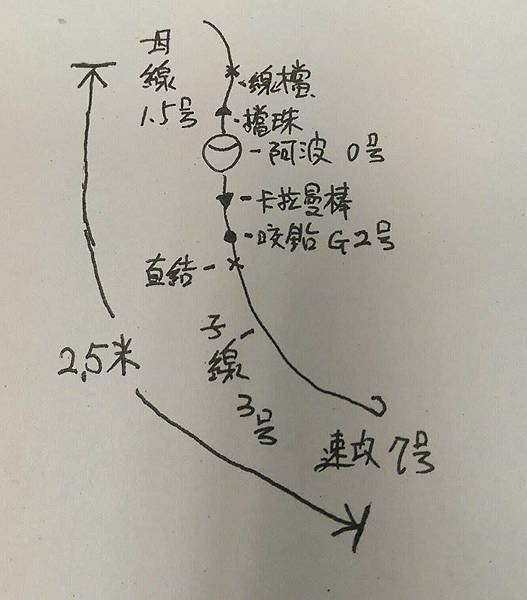 母線1.5号
線檔
擋珠
阿波 0号
卡拉曼棒
咬鉛 G2号
直結
子線3号
2.5米
速攻 7号